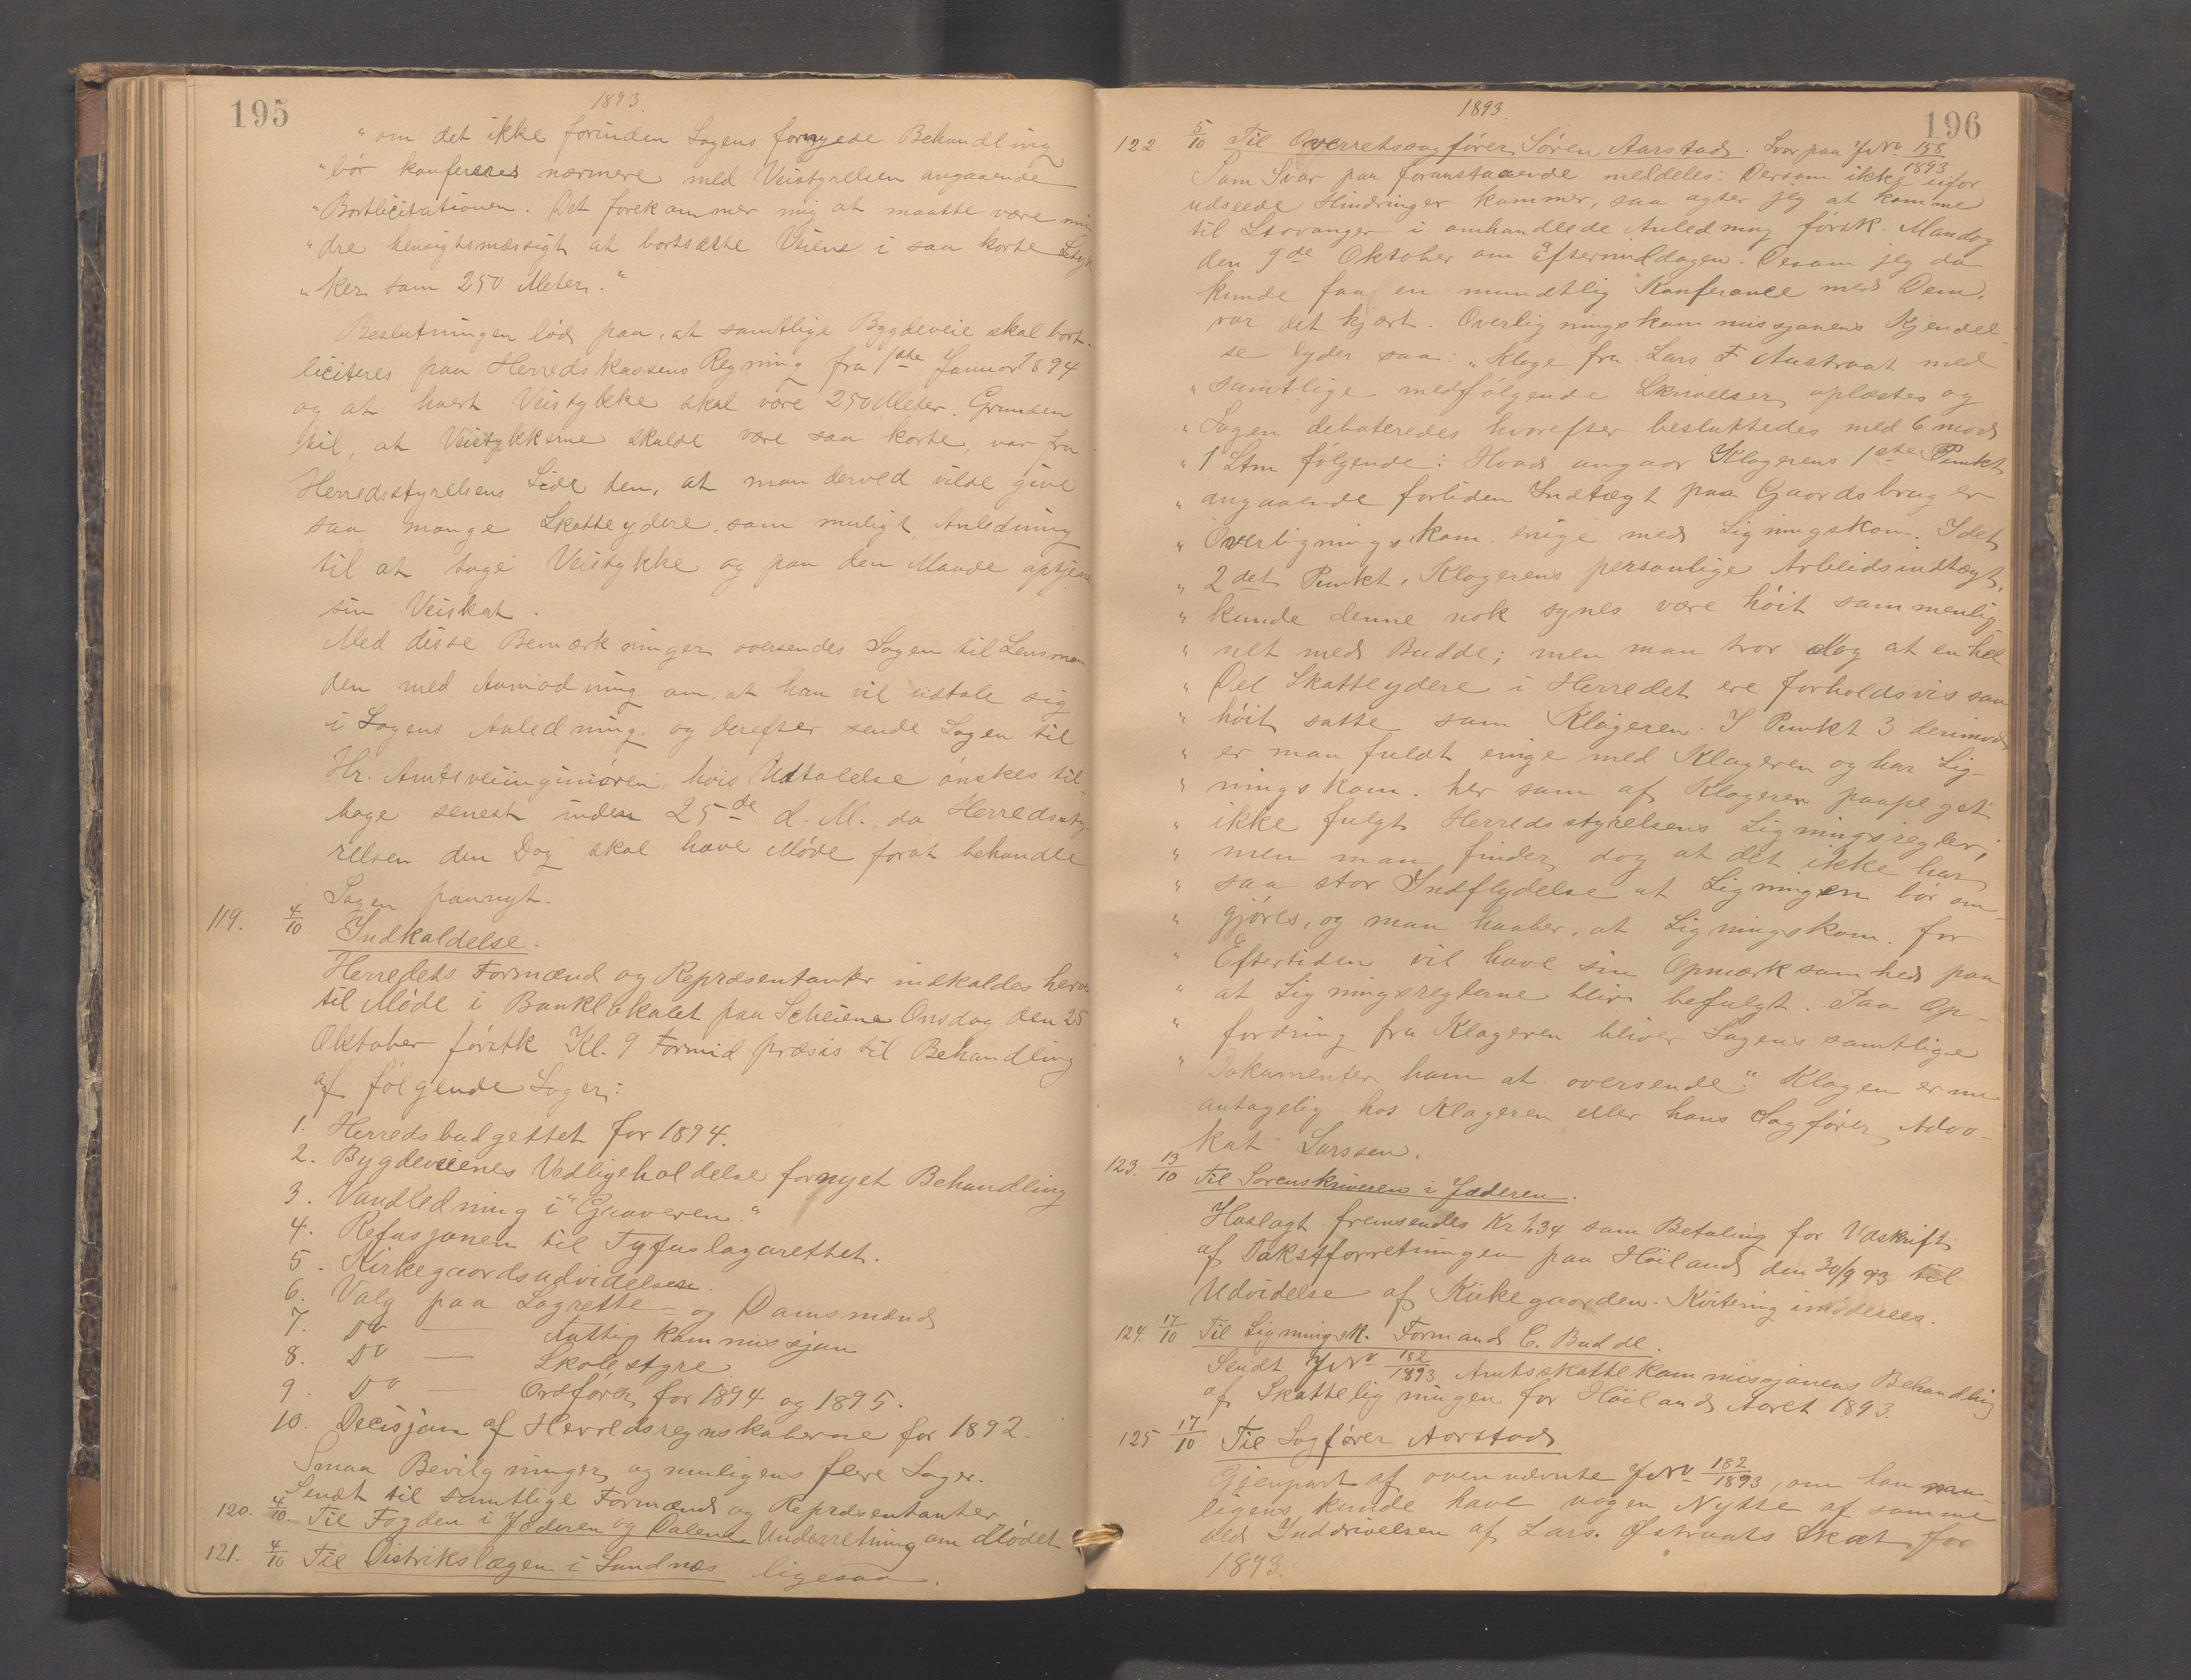 195
1893.
„ om det ikke forinden Sagens fornyede Behandling
„ bör konfereres nærmere med Veistyrelsen angaaende
„ Bortlicitationen. Det forekommer mig at maatte være min
„ dre hensigtsmæssigt at bortsætte Veiene i saa korte Styk
„ ker som 250 Meter.“
Beslutningen löd paa, at samtlige Bygdeveie skal bort-
liciteres paa Herredskassens Regning fra 1ste Januar 1894
og at hvert Veistykke skal være 250 Meter. Grunden
til, at Veistykkerne skulde være saa korte, var fra
Herredsstyrelsens Side den, at man derved vilde give
saa mange Skatteydere som muligt Anledning
til at tage Veistykke og paa den Maade optjene
sin Veiskat.
Med disse Bemærkninger oversendes Sagen til Lensman-
den med Anmodning om, at han vil udtale sig
i Sagens Anledning og derefter sende Sagen til
Hr. Amtsveiingeniören, hvis Udtalelse önskes til-
bage senest inden 25de d. M., da Herredssty-
relsen den Dag skal have Möde forat behandle
Sagen paanyt.
119. 4/10 Indkaldelse.
Herredets Formænd og Repræsentanter indkaldes herved
til Möde i Banklokalet paa Scheiene Onsdag den 25
Oktober förstk Kl. 9 Formid præsis til Behandling
af följgende Sager:
1. Herredsbudgettet for 1894.
2. Bygdeveienes Vedligeholdelse fornyet Behandling
3. Vandledning i “Graveren.“
4. Refusjonen til Tyfuslazarettet.
5. Kirkegaardsudvidelsen.
6. Valg paa Lagrette- og Domsmænd
7. Do — Fattigkommissjon
8. Do — Skolestyre
9. Do — Ordförer for 1894 og 1895.
10. Decisjon af Herredsregnskaberne for 1892.
Smaa Bevilgninger og muligens flere Sager.
Sendt til samtlige Formænd og Repræsentanter
120. 4/10. Til Fogden i Jæderen og Dalene Underretning om Mödet
121. 4/10 Til Distrikslægen i Sandnæs ligesaa.
1893.
196
122. 5/10 Til Overretssagförer Sören Aarstad. Svar paa J.No 158/1893
Som Svar paa foranstaaende meddeles: Dersom ikke ufor-
udseede Hindringer kommer, saa agter jeg at komme
til Stavanger i omhandlede Anledning förstk. Mandag
den 9de Oktober om Eftermiddagen. Desom jeg da
kunde faa en mundtlig Konferance med Dem,
var det kjært. Overligningskommissjonens Kjendel-
se lyder saa: „Klage fra Lars F Austraat med
„ samtlige medfölgende Skrivelser oplæstes og
„ Sagen debateredes hvorefter besluttedes med 6 mod
„ 1 Stm fölgende: Hvad angaar Klagerens 1ste Punkt
„ angaaende forliden Indtægt paa Gaardsbrug er
„ Overligningskom. enige med Ligningskom. I det
„ 2det Punkt, Klagerens personlige Arbeidsindtægt,
„ kunde denne nok synes være höit sammenlig-
„ net med Budde; men man tror dog at en hel
„ Del Skatteydere i Herredet ere forholdsvis saa
„ höit satte som Klageren. I Punkt 3 derimod
„ er man fuldt enige med Klageren og har Lig-
„ ningskom. her som af Klageren paapeget
„ ikke fulgt Herredsstyrelsens Ligningsregler;
„ men man finder dog at det ikke har
„ saa stor Indflydelse at Ligningen bör om-
„ gjöres, og man haaber, at Ligningskom. for
„ Eftertiden vil have sin Opmærksomhed paa
„ at Ligningsreglerne blir befulgt. Paa Op-
„ fordring fra Klageren bliver Sagens samtlige
„ Dokumenter ham at oversende“. Klagen er nu
antagelig hos Klageren eller hans Sagförer, Advo-
kat Larssen.
123. 13/10 Til Sorenskriveren i Jæderen.
Hoslagt fremsendes Kr 1,34 som Betaling for Udskrift
af Takstforretningen paa Höiland den 30/9 93 til
Udvidelse af Kirkegaarden. Kvitering imödesees.
124. 17/10 Til Ligningsk. Formand E. Budde.
Sendt J.No 182/1893 Amtsskattekommissjonens Behandling
af Skatteligningen for Höiland Aaret 1893.
125 17/10 Til Sagförer Aarstad
Gjenpart af ovennævnte J.No 182/1893, om han mu-
ligens kunde have nogen Nytte af samme
ved Inddrivelsen af Lars Østraats Skat for
1893.